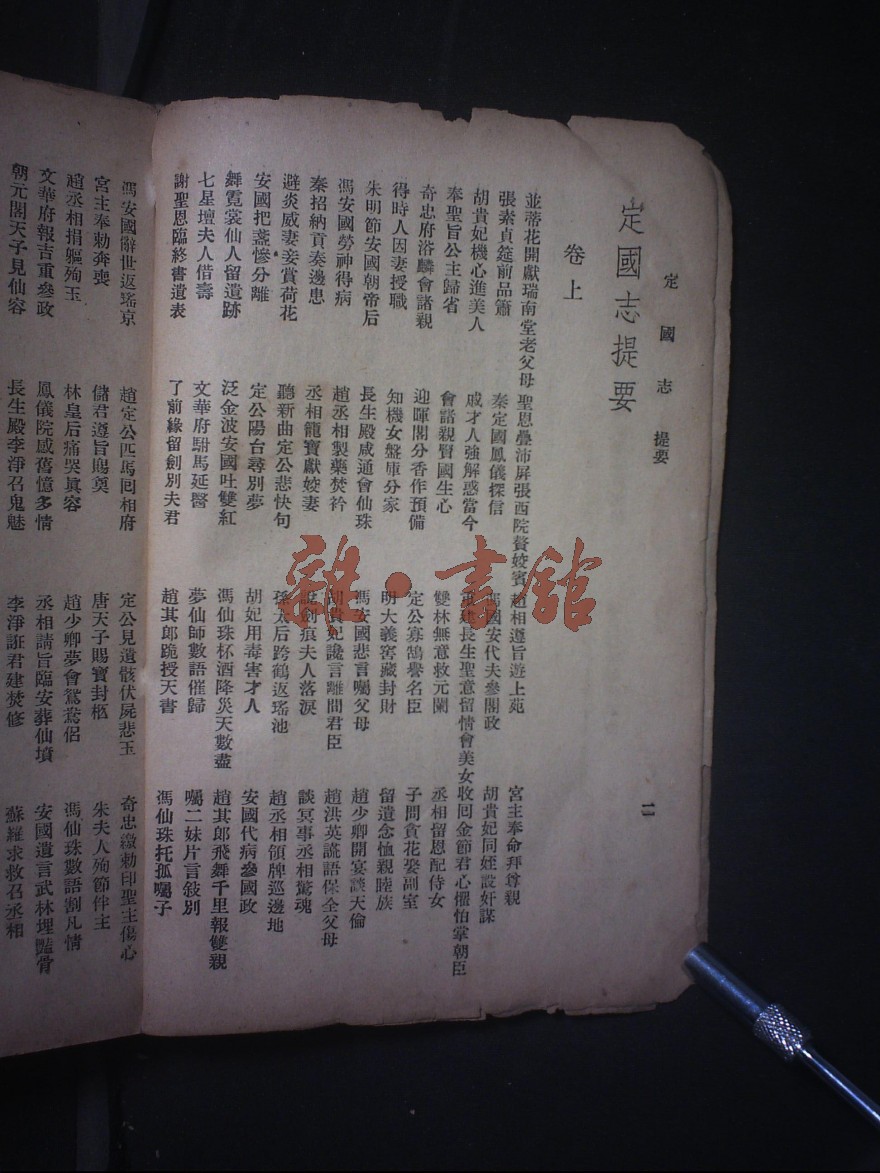 定國志 提要
二
定國志提要
卷上
並蒂花開獻瑞南堂老父母 聖恩疊沛屏張西院贅姣賓 趙相遵旨遊上苑 宮主奉命拜尊親
張素貞筵前品簫 秦定國鳳儀探信 馮國安代夫參閣政 胡貴妃同姪設奸謀
胡貴妃機心進美人 戚才人強解惑當今 重建長生聖意留情會美女 收回金節君心懼怕掌朝臣
奉聖旨公主歸省 會諸親賢國生心 雙林無意救元闌 丞相留恩配侍女
奇忠府浴麟會諸親 迎暉閣分香作預備 定公寡鵠譽名臣 子問貪花娶副室
得時人因妻授職 知機女盤庫分家 明大義窖藏封財 留遺念恤親睦族
朱明節安國朝帝后 長生殿咸通會仙珠 馮安國悲言囑父母 趙少卿開宴談天倫
馮安國勞神得病 趙丞相製藥焚衿 胡貴妃讒言離間君臣 趙洪英謊語保全父母
秦招納貢奏邊患 丞相寵寶獻姣妻 說劍痕夫人落淚 談冥事丞相驚魂
避炎威妻妾賞荷花 聽新曲定公悲快句 孫太后跨鶴返瑤池 趙丞相領牌巡邊地
安國把盞慘分離 定公陽台尋別夢 胡妃用毒害才人 安國代病參國政
舞霓裳仙人留遺跡 泛金波安國吐雙紅 馮仙珠杯酒降災天數盡 趙其郎飛舞千里報雙親
七星壇夫人借壽 文華府駙馬延醫 夢仙師數語催歸 囑二妹片言敍別
謝聖恩臨終書遺表 了前緣留劍別夫君 趙其郎跪授天書 馮仙珠托孤囑子
馮安國辭世返瑤京 趙定公匹馬回相府 定公見遺骸伏屍悲玉 奇忠繳勅印聖主傷心
宮主奉勅奔喪 儲君遵旨賜奠 唐天子賜寶封柩 朱夫人殉節伴主
趙丞相捐軀殉玉 林皇后痛哭眞容 趙少卿夢會鴛鴦侶 馮仙珠數語割凡情
文華府報吉重參政 鳳儀院感舊憶多情 丞相請旨臨安葬仙墳 安國遺言武林埋豔骨
朝元閣天子見仙容 長生殿李淨召鬼魅 李淨誑君建焚修 蘇羅求救召丞相
雜·書館